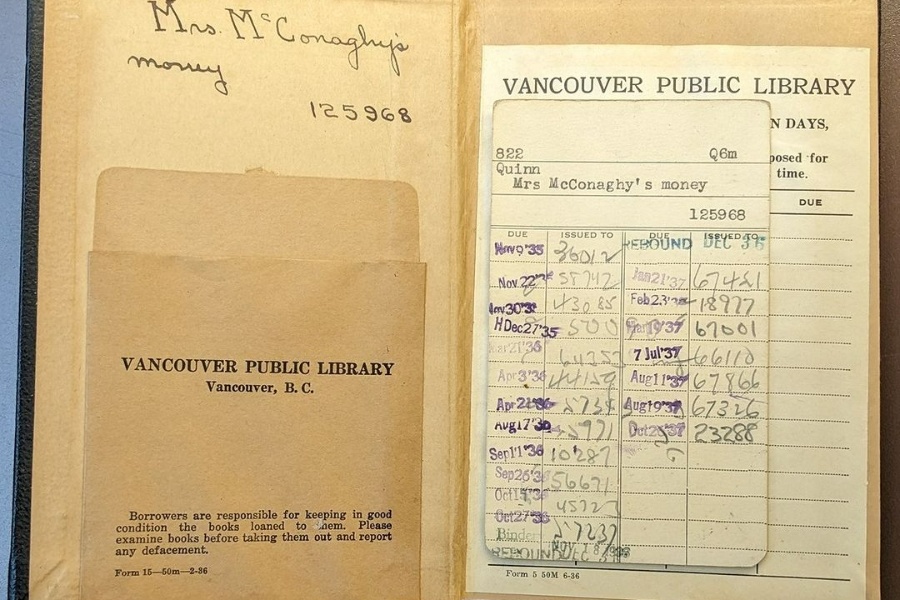 Mrs. McConaghy's
money
125968
VANCOUVER PUBLIC LIBRARY
Vancouver, B. C.
Borrowers are responsible for keeping in good
condition the books loaned to them. Please
examine books before taking them out and report
any defacement.
Form 15—50m—2-36
VANCOUVER PUBLIC LIBRARY
N DAYS,
posed for
time.
DUE
822 Q6m
Quinn
Mrs McConaghy's money
125968
DUE ISSUED TO DUE ISSUED TO
Nov 9'35 36012 REBOUND DEC 36
Nov 22 58742 Jan 21'37 67421
30'35 43085 Feb 23 18977
H Dec 27'35 67001
7 Jul '37 66110
Apr 3'36 44159 Aug 11'37 67866
Apr 21'36 Aug 19'37 67326
Aug 17'36 23288
Sep 11'36 10287
Sep 26'36 56671
Oct 27'36
Binder
REBOUND
Form 5 50M 6-36